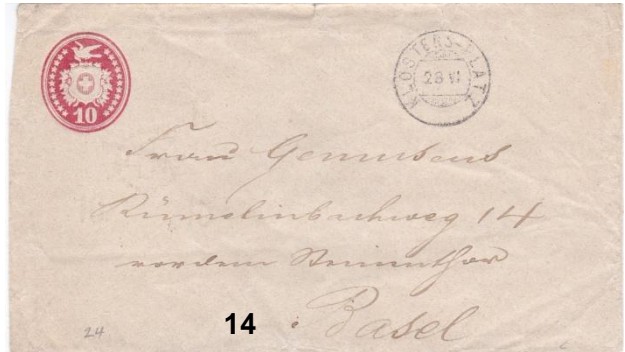 KLOSTERS-PLATZ
28 VI
10
Frau Gemuseus
Rümelinbachweg 14
vor dem Steinenthor
Basel
24
14